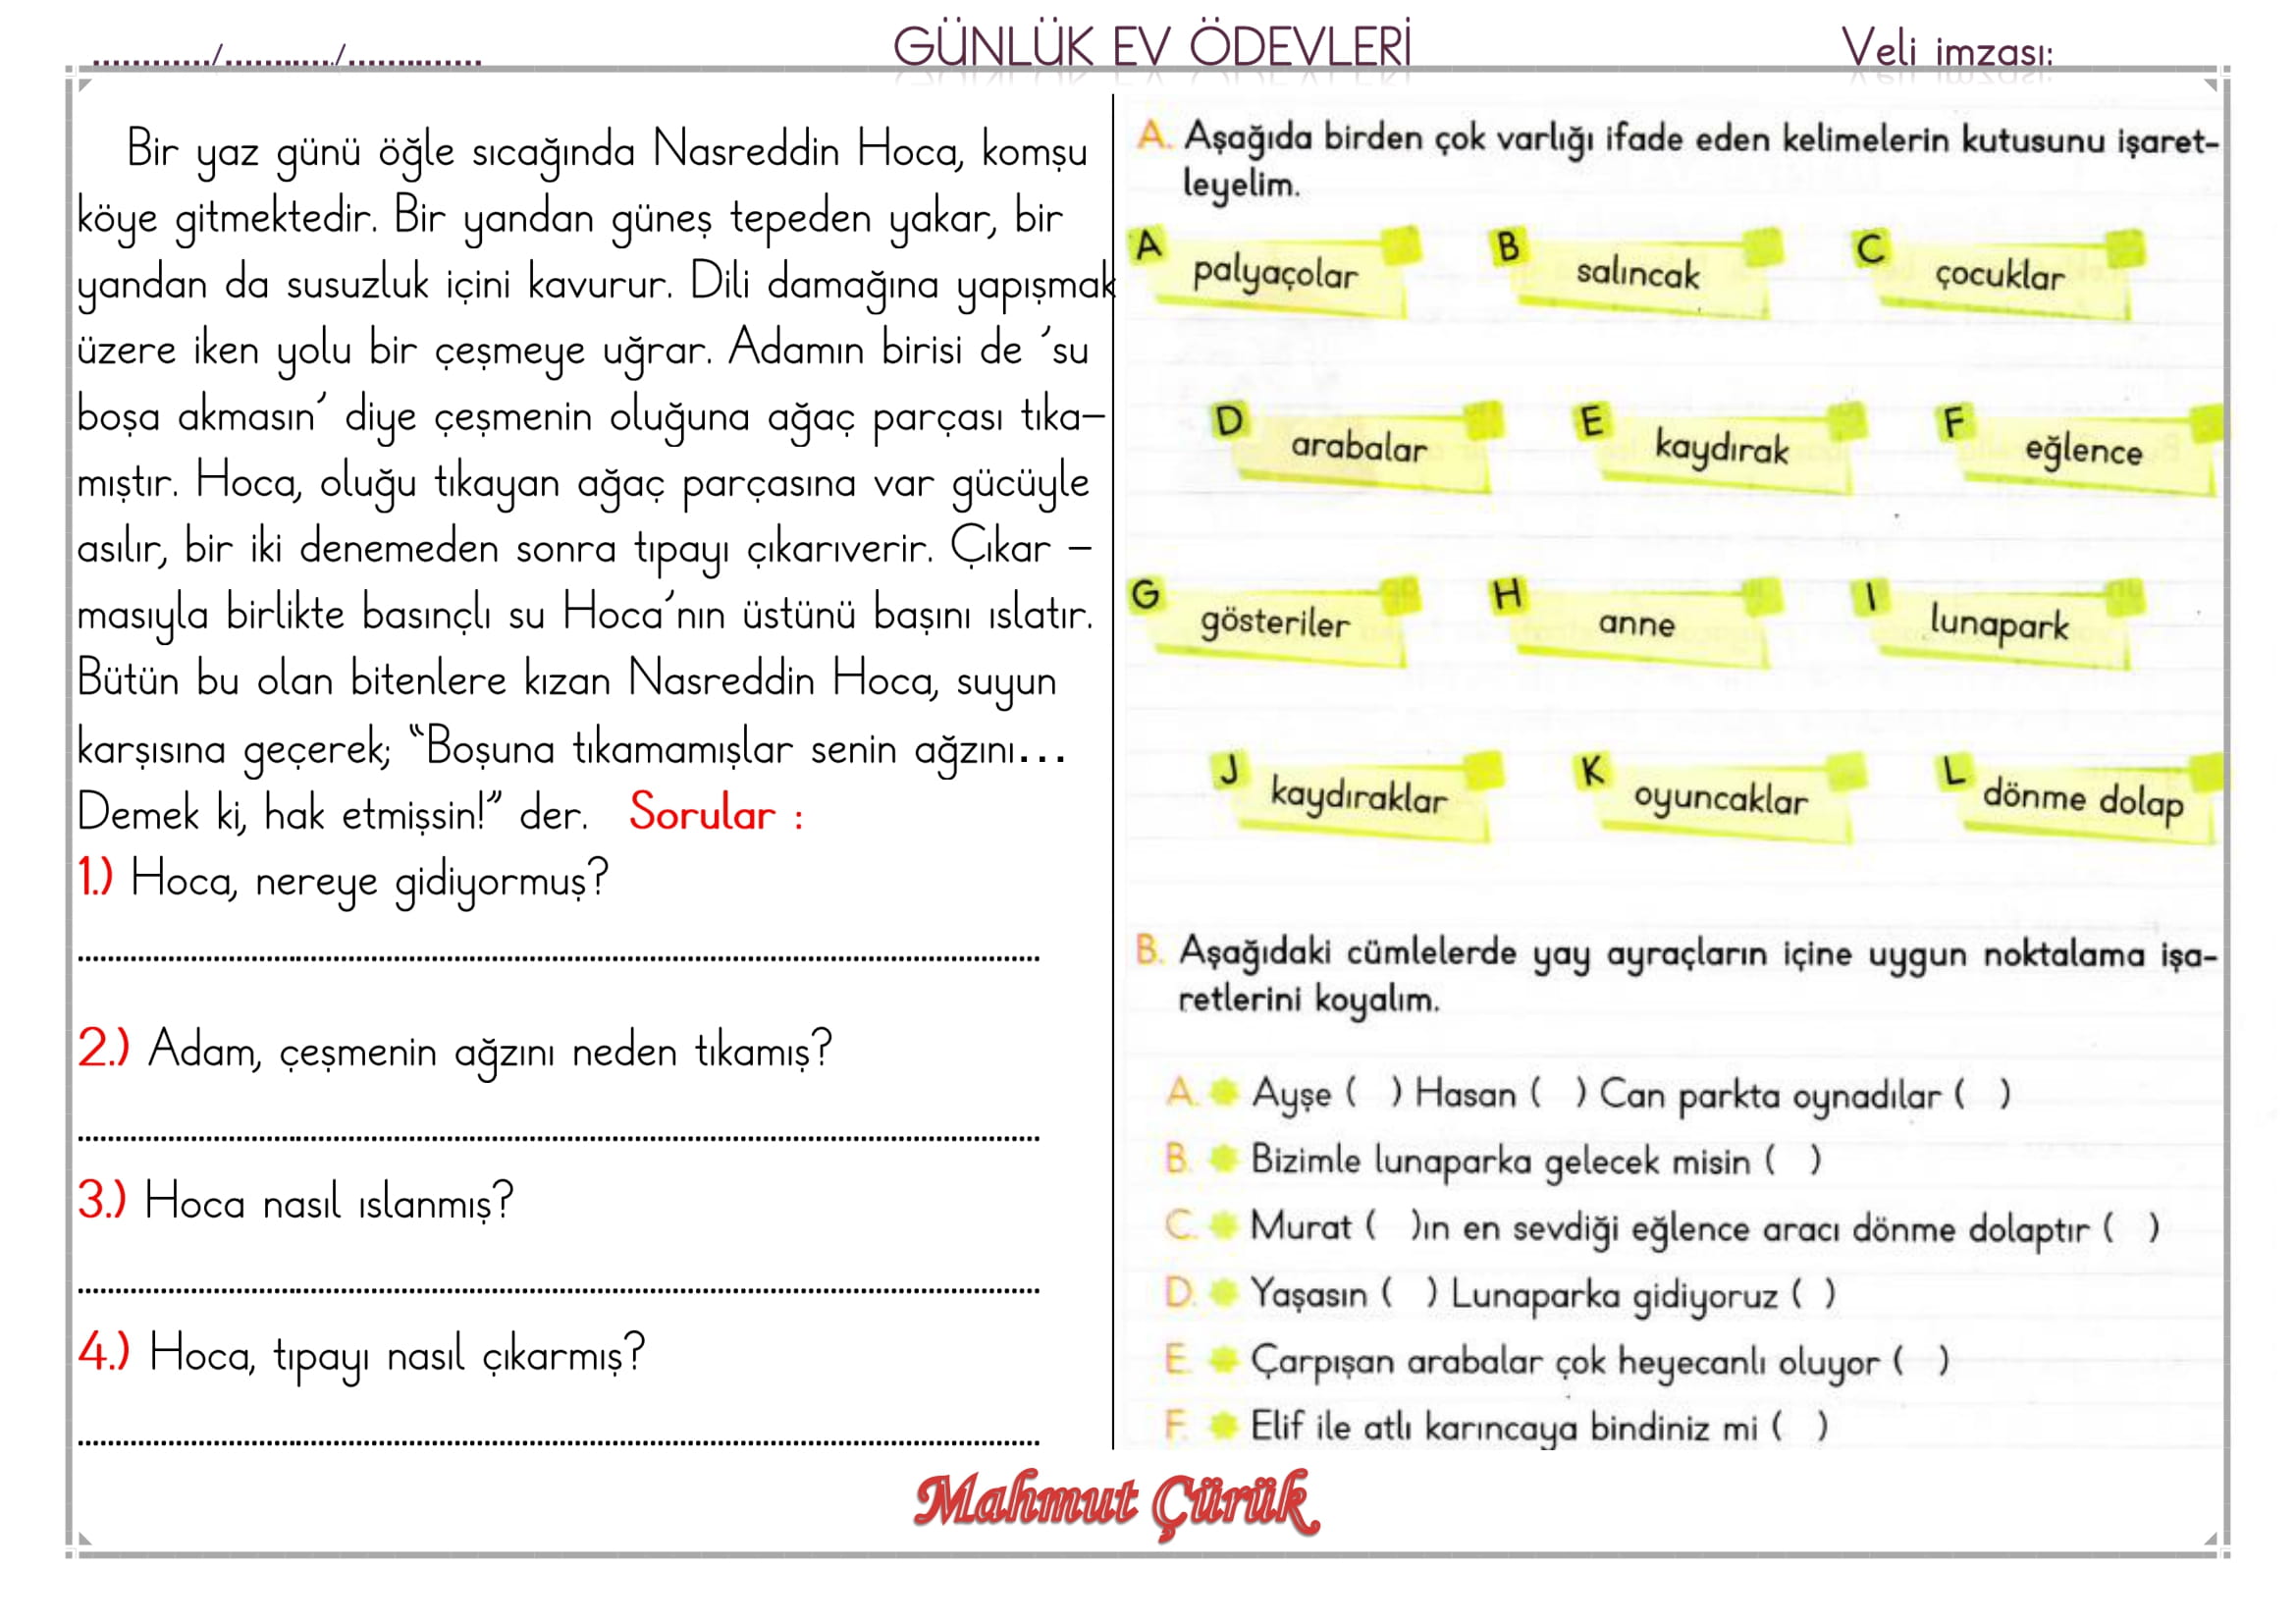 ............./............/...............
GÜNLÜK EV ÖDEVLERİ
Veli imzası:
Bir yaz günü öğle sıcağında Nasreddin Hoca, komşu
köye gitmektedir. Bir yandan güneş tepeden yakar, bir
yandan da susuzluk içini kavurur. Dili damağına yapışmak
üzere iken yolu bir çeşmeye uğrar. Adamın birisi de ’su
boşa akmasın’ diye çeşmenin oluğuna ağaç parçası tıka–
mıştır. Hoca, oluğu tıkayan ağaç parçasına var gücüyle
asılır, bir iki denemeden sonra tıpayı çıkarıverir. Çıkar –
masıyla birlikte basınçlı su Hoca’nın üstünü başını ıslatır.
Bütün bu olan bitenlere kızan Nasreddin Hoca, suyun
karşısına geçerek; “Boşuna tıkamamışlar senin ağzını...
Demek ki, hak etmişsin!” der. Sorular :
1.) Hoca, nereye gidiyormuş?
2.) Adam, çeşmenin ağzını neden tıkamış?
3.) Hoca nasıl ıslanmış?
4.) Hoca, tıpayı nasıl çıkarmış?
A. Aşağıda birden çok varlığı ifade eden kelimelerin kutusunu işaret-
leyelim.
A palyaçolar B salıncak C çocuklar
D arabalar E kaydırak F eğlence
G gösteriler H anne I lunapark
J kaydıraklar K oyuncaklar L dönme dolap
B. Aşağıdaki cümlelerde yay ayraçların içine uygun noktalama işa-
retlerini koyalım.
A. Ayşe ( ) Hasan ( ) Can parkta oynadılar ( )
B. Bizimle lunaparka gelecek misin ( )
C. Murat ( )ın en sevdiği eğlence aracı dönme dolaptır ( )
D. Yaşasın ( ) Lunaparka gidiyoruz ( )
E. Çarpışan arabalar çok heyecanlı oluyor ( )
F. Elif ile atlı karıncaya bindiniz mi ( )
Mahmut Çürük